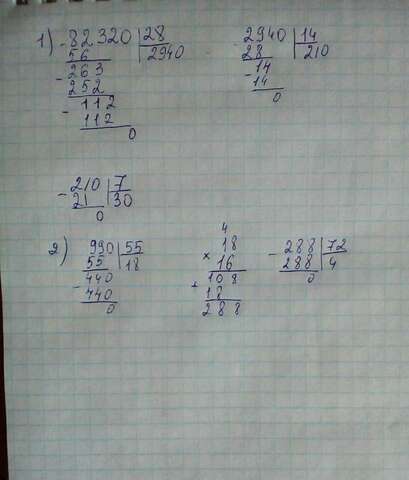 1) - 82320 | 28
56 | 2940
- 263
252
- 112
112
0
- 2940 | 14
28 | 210
- 14
14
0
- 210 | 7
21 | 30
0
2) 990 | 55
55 | 18
- 440
440
0
4
18
× 16
108
+ 18
288
- 288 | 72
288 | 4
0